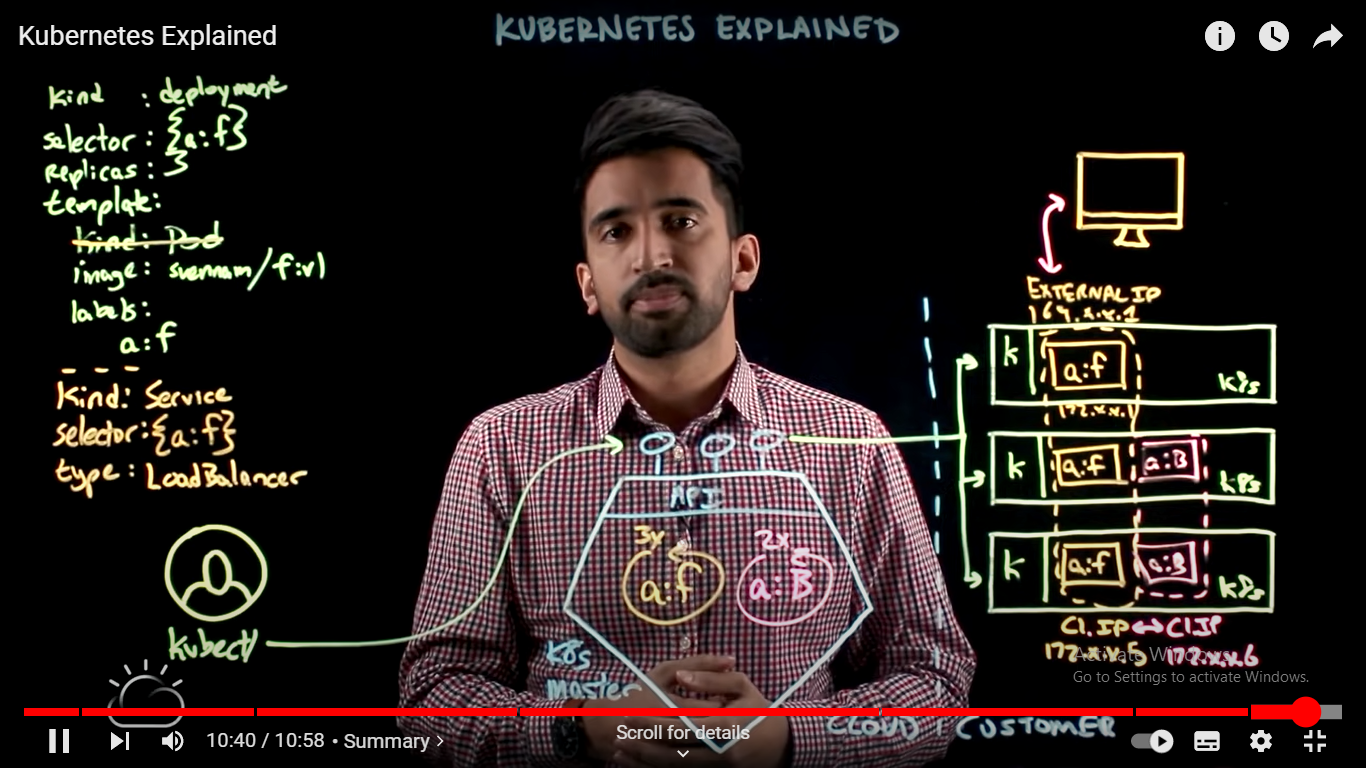 Kubernetes Explained
KUBERNETES EXPLAINED
kind : deployment
selector : {a:f}
replicas : 3
template:
kind: Pod
image: svennam/f:v1
labels:
a:f
- - -
Kind: Service
selector:{a:f}
type: LoadBalancer
kubectl
API
3x
a:f
2x
a:B
K8s
master
EXTERNAL IP
k
a:f
k8s
k
a:f
a:B
k8s
k
a:f
a:B
k8s
Cl.IP
Cl IP
172.x.x.5
172.x.x.6
CLOUD
CUSTOMER
Activate Windows
Go to Settings to activate Windows.
10:40 / 10:58 • Summary
Scroll for details